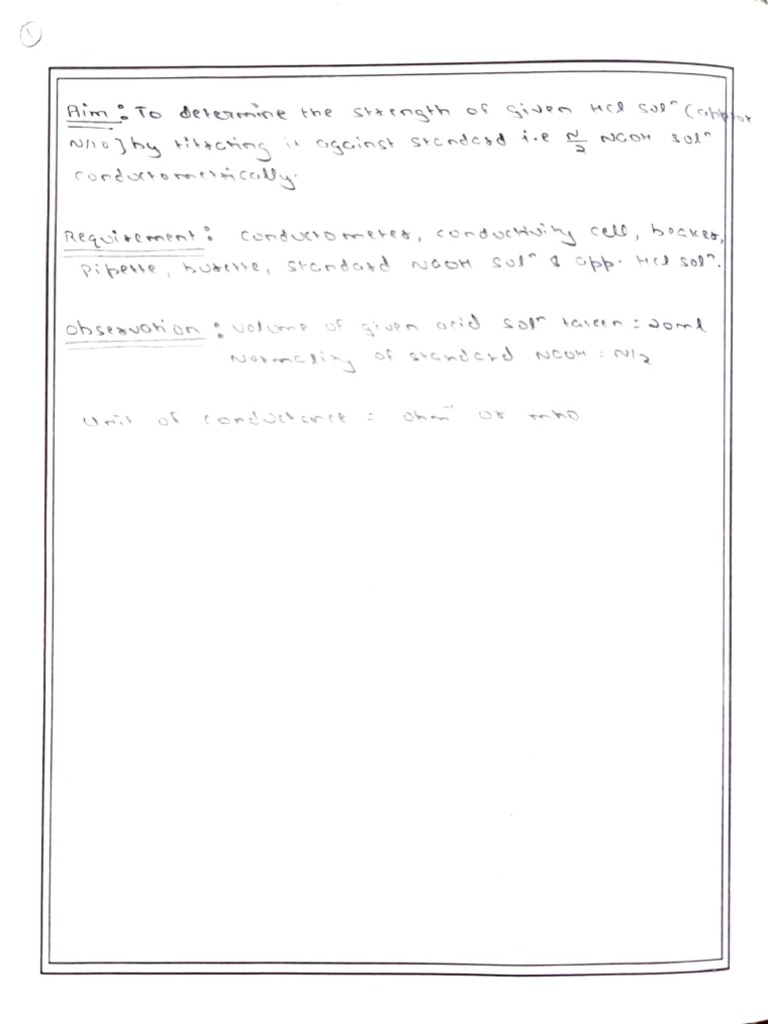 1
Aim : To determine the strength of given HCl solⁿ (approx
N/10] by titrating it against standard i.e N/2 NaOH solⁿ
conductometrically.
Requirement : conductometer, conductivity cell, beaker,
Pipette, burette, standard NaOH solⁿ & app. HCl solⁿ.
Observation : volume of given acid solⁿ taken = 20ml
Normality of standard NaOH = N/2
Unit of conductance = ohm⁻¹ or mho